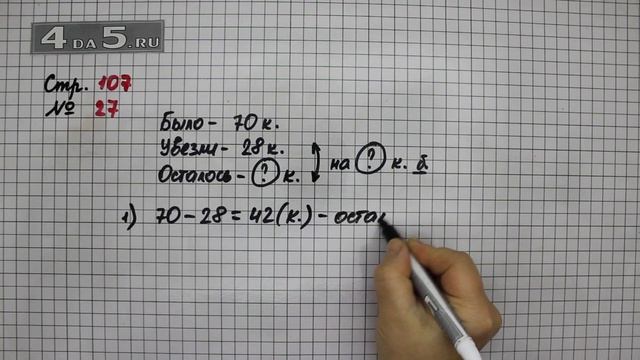 4DA5.RU
Стр. 107
№ 27
Было - 70 к.
Увезли - 28 к.
Осталось - ? к.
на ? к. б.
1) 70 - 28 = 42 (к.) - остал